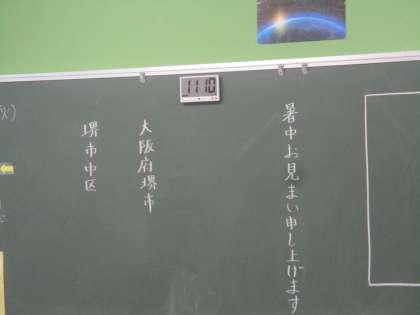 暑中お見まい申し上げます
大阪府堺市
堺市中区
11:10